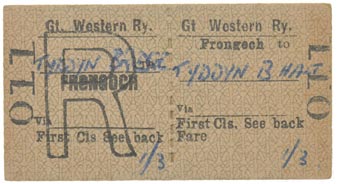 Gt Western Ry.
R
TYDDYN BRIDGE
FRONGOCH
Via
First Cls See back
1/3
011
Gt Western Ry.
Frongoch to
TYDDYN B HALT
Via
First Cls. See back
Fare
1/3
011